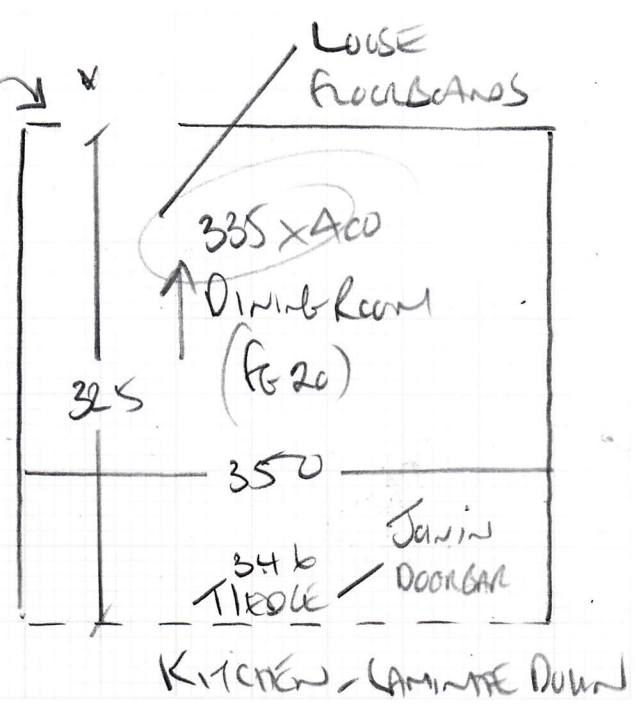 LOOSE
FLOORBOARDS
335 x 400
DINING ROOM
(FE 20)
325
350
346
JOININ
DOORBAR
KITCHEN - LAMINATE DOWN